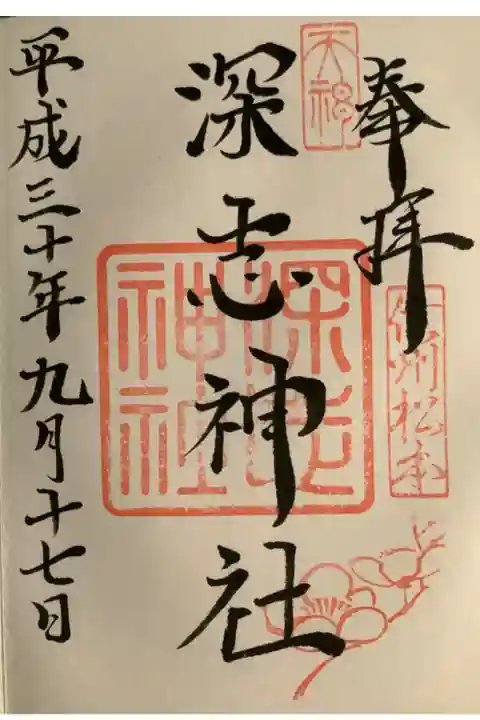 奉拝
信州松本
天神
深志神社
深志神社
平成三十年九月十七日